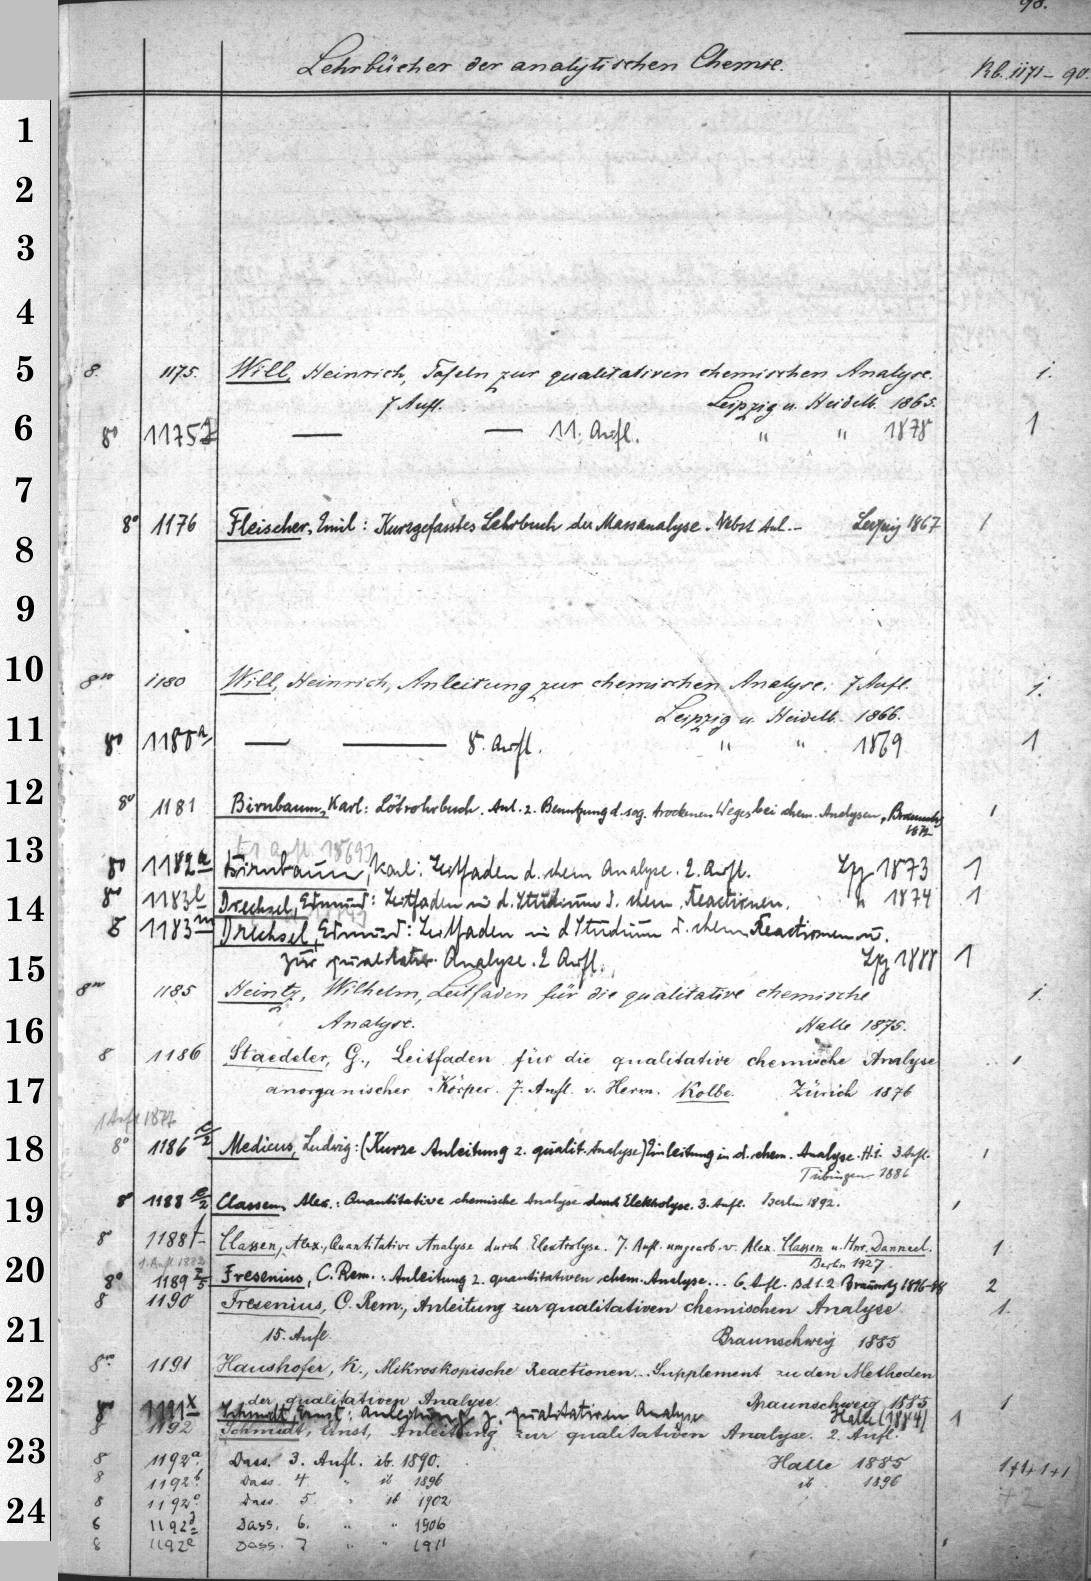 98.
Lehrbücher der analytischen Chemie. Kb. 1171-90
1
2
3
4
5 8. 1175. Will, Heinrich, Tafeln zur qualitativen chemischen Analyse. 1.
7 Aufl. Leipzig u. Heidelb. 1865.
6 8° 1175 — — 11. Aufl. " " 1878 1
7
8° 1176 Fleischer, Emil: Kurzgefasstes Lehrbuch der Massanalyse. Nebst Anl. - Leipzig 1867 1
8
9
10 8° 1180 Will, Heinrich, Anleitung zur chemischen Analyse. 7 Aufl. 1.
Leipzig u. Heidelb. 1866.
11 8° 1180a — — 8. Aufl. " " 1869 1
12 8° 1181 Birnbaum, Karl: Lötrohrbuch. Anl. z. Benutzung d. sog. trockenen Weges bei chem. Analysen, Braunschw. 1872 1
13
8° 1182a Birnbaum, Karl: Leitfaden d. chem Analyse. 2. Aufl. Lpz 1873 1
14 8° 1183l Drechsel, Edmund: Leitfaden in d. Studium d. chem. Reactionen. " 1874 1
8 1183m Drechsel, Edmund: Leitfaden in d Studium d. chem. Reactionen u.
15 zur qualitativ. Analyse. 2 Aufl. Lpz 1888 1
8° 1185 Heintz, Wilhelm, Leitfaden für die qualitative chemische 1.
16 Analyse. Halle 1875.
8 1186 Staedeler, G., Leitfaden für die qualitative chemische Analyse 1
17 anorganischer Körper. 7. Aufl. v. Herm. Kolbe. Zürich 1876
1 Aufl 1877
18 8° 1186 e/2 Medicus, Ludwig: (Kurze Anleitung z. qualit. Analyse) Einleitung in d. chem. Analyse. H.1. 3 Aufl. 1
Tübingen 1886
19 8° 1188 e/2 Classen, Alex.: Quantitative chemische Analyse durch Elektrolyse. 3. Aufl. Berlin 1892. 1
8° 1188f Classen, Alex., Quantitative Analyse durch Electrolyse. 7. Aufl. umgearb. v. Alex. Classen u. Hnr. Danneel. 1
Berlin 1927.
20 8° 1189 Fresenius, C. Rem.: Anleitung z. quantitativen chem. Analyse... 6. Afl. Bd 1.2. Braunschw 1876-88 2
8 1190 Fresenius, C. Rem., Anleitung zur qualitativen chemischen Analyse 1.
21 15. Aufl. Braunschweig 1885
8° 1191 Haushofer, K., Mikroskopische Reactionen. Supplement zu den Methoden
22 der qualitativen Analyse. Braunschweig 1885 1
8° 1191x Schmidt, Ernst: Anleitung z. qualitativen Analyse Halle (1884) 1
8 1192 Schmidt, Ernst, Anleitung zur qualitativen Analyse. 2. Aufl.
23 8 1192a Dass. 3. Aufl. ib. 1890. Halle 1885 1+1+1+1
8 1192b Dass. 4 " ib 1896 ib 1896 +2
8 1192c Dass. 5. " ib 1902
24 8 1192d Dass. 6. " " 1906
8 1192e Dass. 7 " " 1911